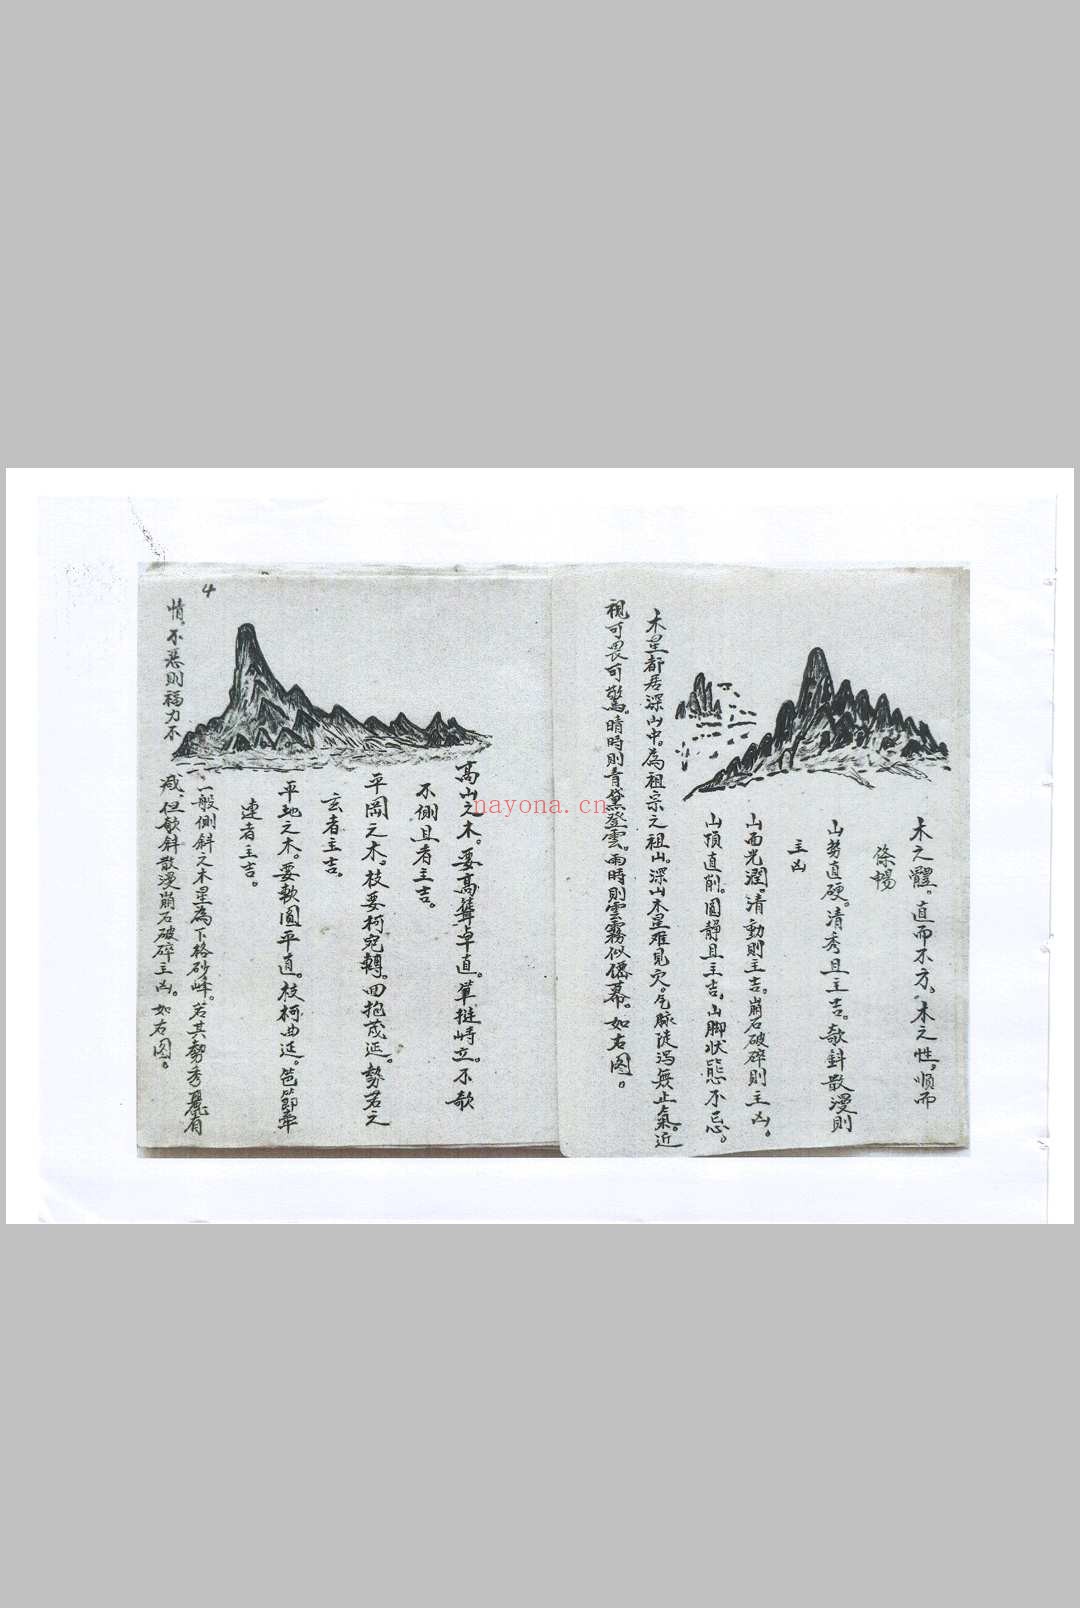 木之體。直而不方。木之性。順而
條暢
山勢直硬。清秀且主吉。欹斜散漫則
主凶
山面光潤。清動則主吉。崩石破碎則主凶。
山頂直削。圓靜且主吉。山脚狀態不忌。
木星都居深山中。為祖宗之祖山。深山木星难見穴。气脉陡瀉無止氣。近
視可畏可驚。晴時則青黛登雲。雨時則雲霧似僊幕。如右图。
高山之木。要高聳卓直。單挺峙立。不欹
不側且者主吉。
平岡之木。枝要柯宛轉。回抱茂延。勢若之
玄者主吉。
平地之木。要軟圓平直。枝柯曲延。苞節牽
連者主吉。
一般側斜之木星為下格砂峰。若其勢秀麗有
情。不惡則福力不
减。但欹斜散漫崩石破碎主凶。如右图。
4
nayona.cn